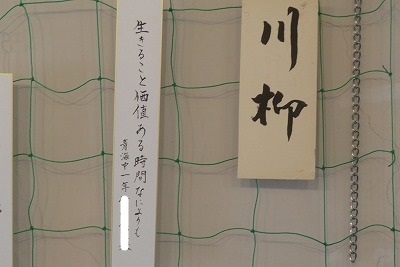 川柳
生きること価値ある時間なによりも
青海中一年